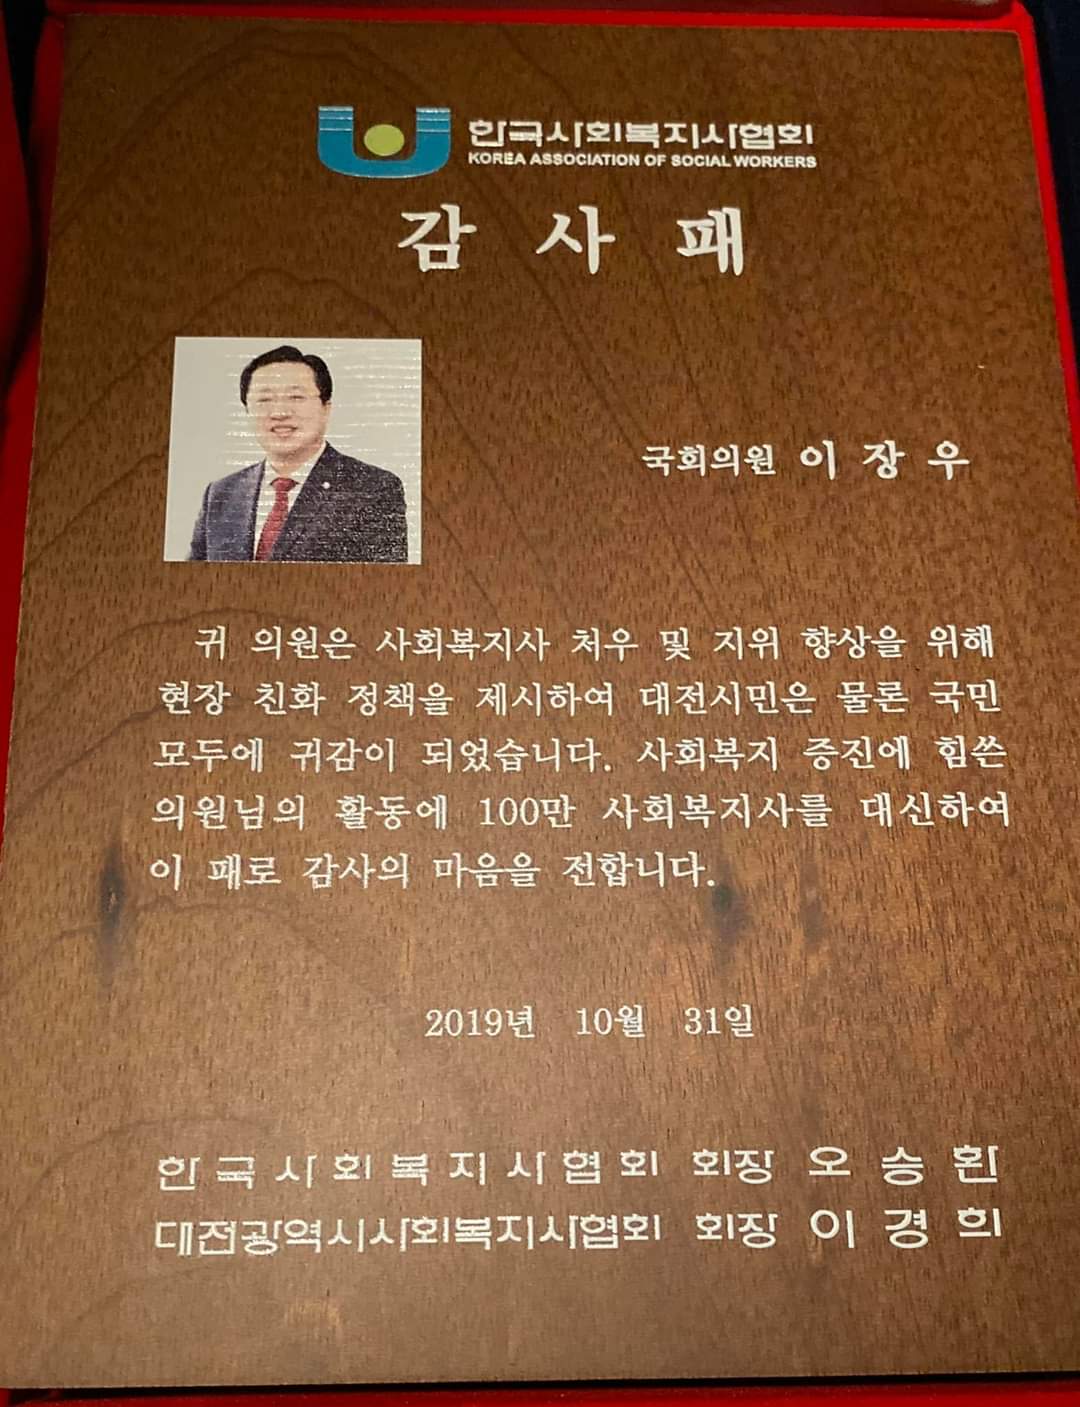 한국사회복지사협회
KOREA ASSOCIATION OF SOCIAL WORKERS
감 사 패
국회의원 이 장 우
귀 의원은 사회복지사 처우 및 지위 향상을 위해
현장 친화 정책을 제시하여 대전시민은 물론 국민
모두에 귀감이 되었습니다. 사회복지 증진에 힘쓴
의원님의 활동에 100만 사회복지사를 대신하여
이 패로 감사의 마음을 전합니다.
2019년 10월 31일
한 국 사 회 복 지 사 협 회 회장 오 승 환
대전광역시사회복지사협회 회장 이 경 희